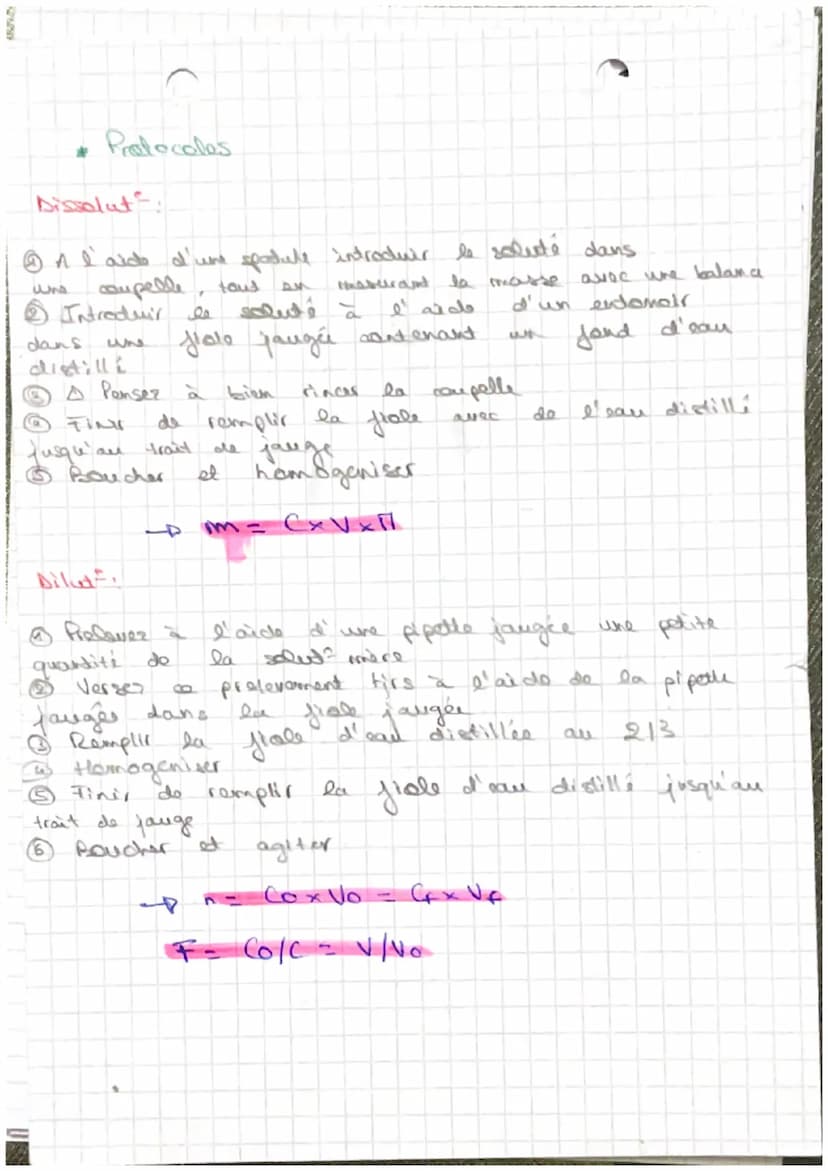 * Protocoles
Dissolut°:
① A l'aide d'une spatule introduire le soluté dans
une coupelle, tous en mesurant la masse avec une balance
② Introduir le soluté à l'aide d'un entonoir
dans une fiole jaugée contenant un fond d'eau
distillé
③ ⚠ Pensez à bien rincer la coupelle
④ Finir de remplir la fiole avec de l'eau distillé
jusqu'au trait de jauge
⑤ Boucher et homogeniser
→ m = C x V x M
Dilut°:
① Prelevez à l'aide d'une pipette jaugée une petite
quantité de la solut° mère
② Versez ce prelevement tjrs à l'aide de la pipette
jaugée dans la fiole jaugée
③ Remplir la fiole d'eau distillée au 2/3
④ Homogeniser
⑤ Finir de remplir la fiole d'eau distillé jusqu'au
trait de jauge
⑥ Boucher et agiter
→ n = C0 x V0 = Cf x Vf
F = C0/C = V/V0